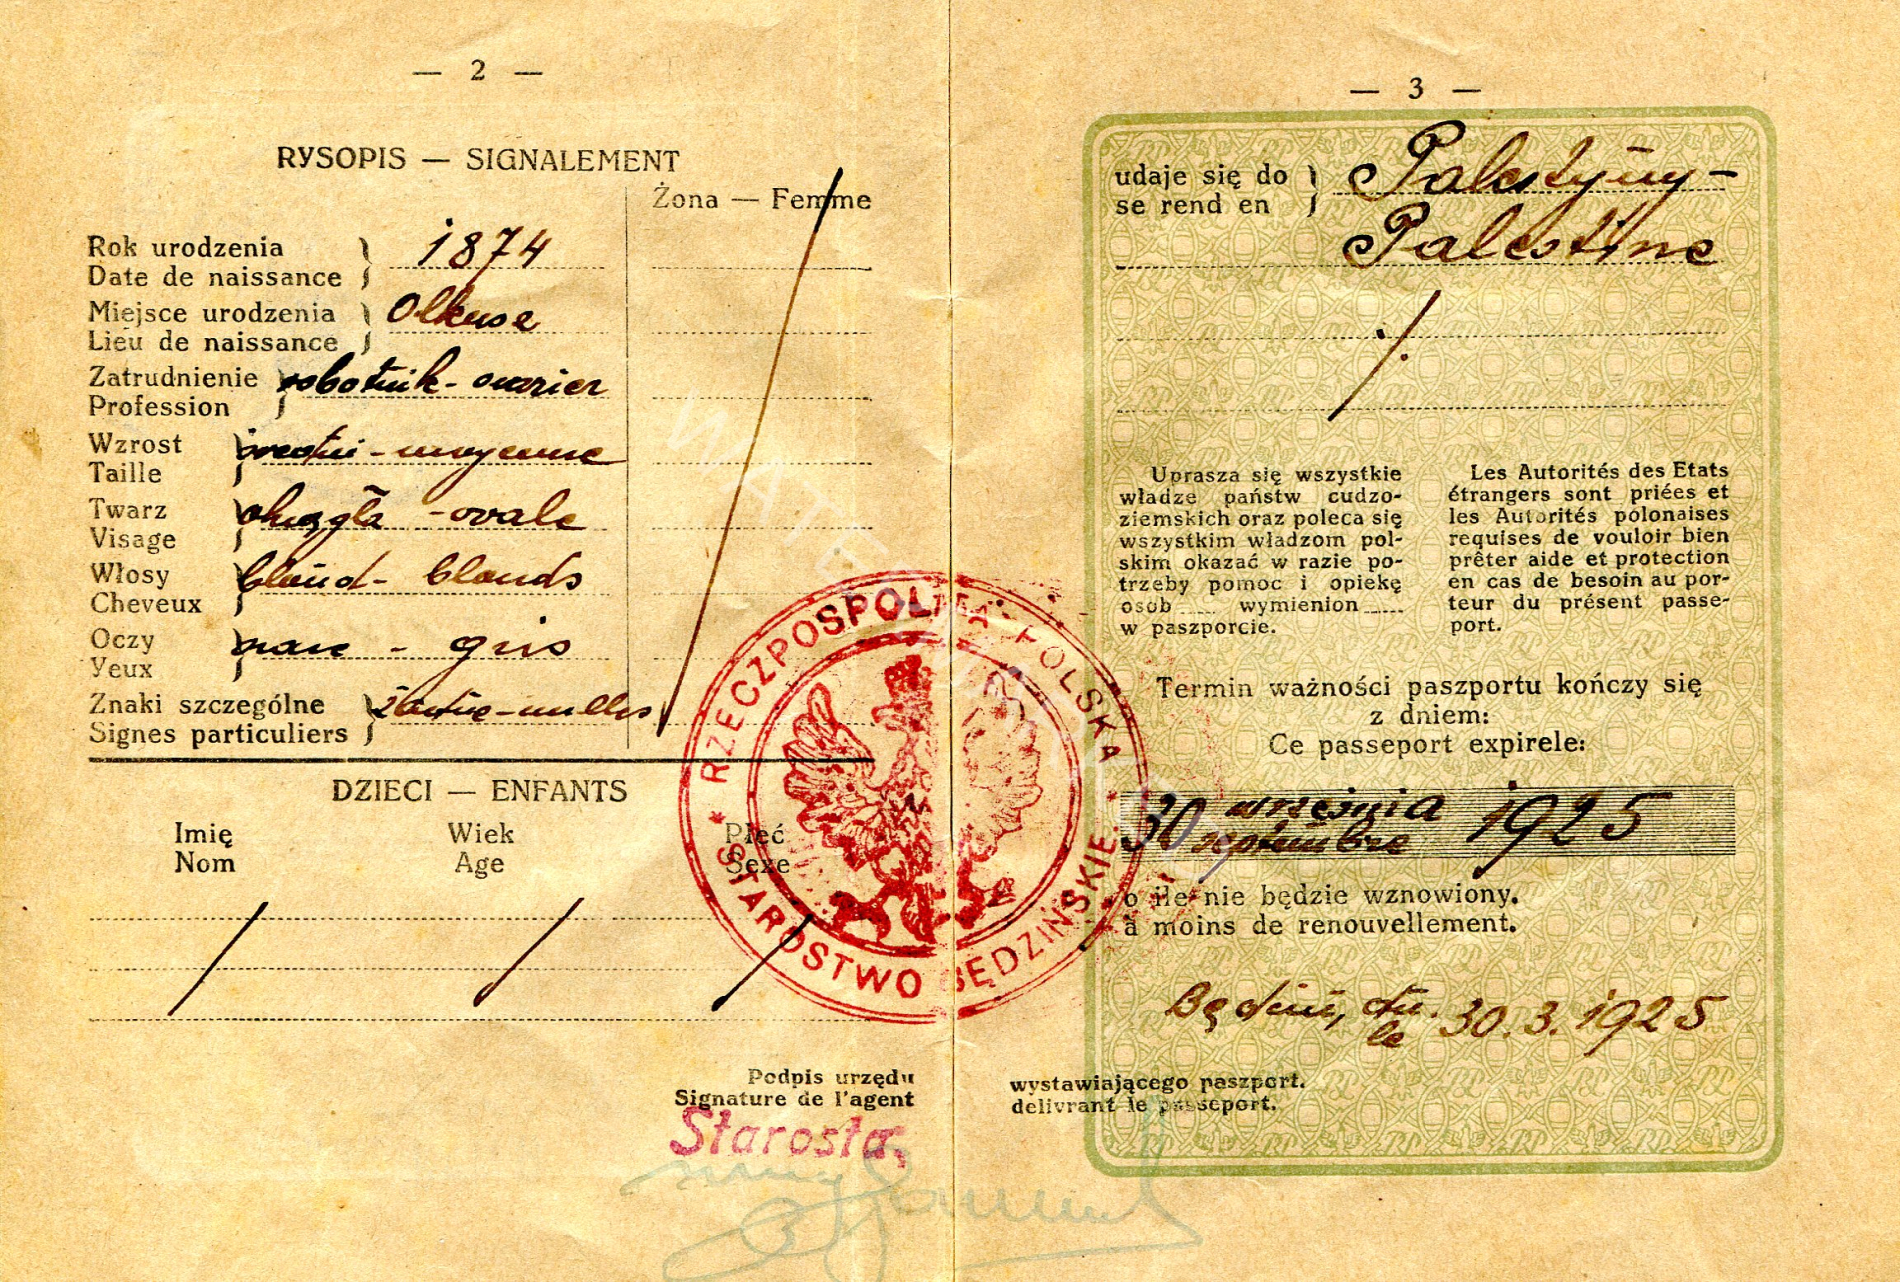 — 2 —
RYSOPIS — SIGNALEMENT
Żona — Femme
Rok urodzenia
Date de naissance
1874
Miejsce urodzenia
Lieu de naissance
Olkusz
Zatrudnienie
Profession
robotnik - ouvrier
Wzrost
Taille
średni - moyenne
Twarz
Visage
okrągła - ovale
Włosy
Cheveux
blond - blonds
Oczy
Yeux
- gris
Znaki szczególne
Signes particuliers
żadne - nulles
DZIECI — ENFANTS
Imię Wiek Płeć
Nom Age Sexe
RZECZPOSPOLITA POLSKA
* STAROSTWO BĘDZIŃSKIE *
Podpis urzędu
Signature de l'agent
Starosta
— 3 —
udaje się do
se rend en
Palestyny -
Palestine
Uprasza się wszystkie
władze państw cudzo-
ziemskich oraz poleca się
wszystkim władzom pol-
skim okazać w razie po-
trzeby pomoc i opiekę
osob ..... wymienion .....
w paszporcie.
Les Autorités des Etats
étrangers sont priées et
les Autorités polonaises
requises de vouloir bien
prêter aide et protection
en cas de besoin au por-
teur du présent passe-
port.
Termin ważności paszportu kończy się
z dniem:
Ce passeport expirele:
30 września 1925
septembre
o ile nie będzie wznowiony.
à moins de renouvellement.
Będzin, dn. 30.3.1925
le
wystawiającego paszport.
delivrant le passeport.